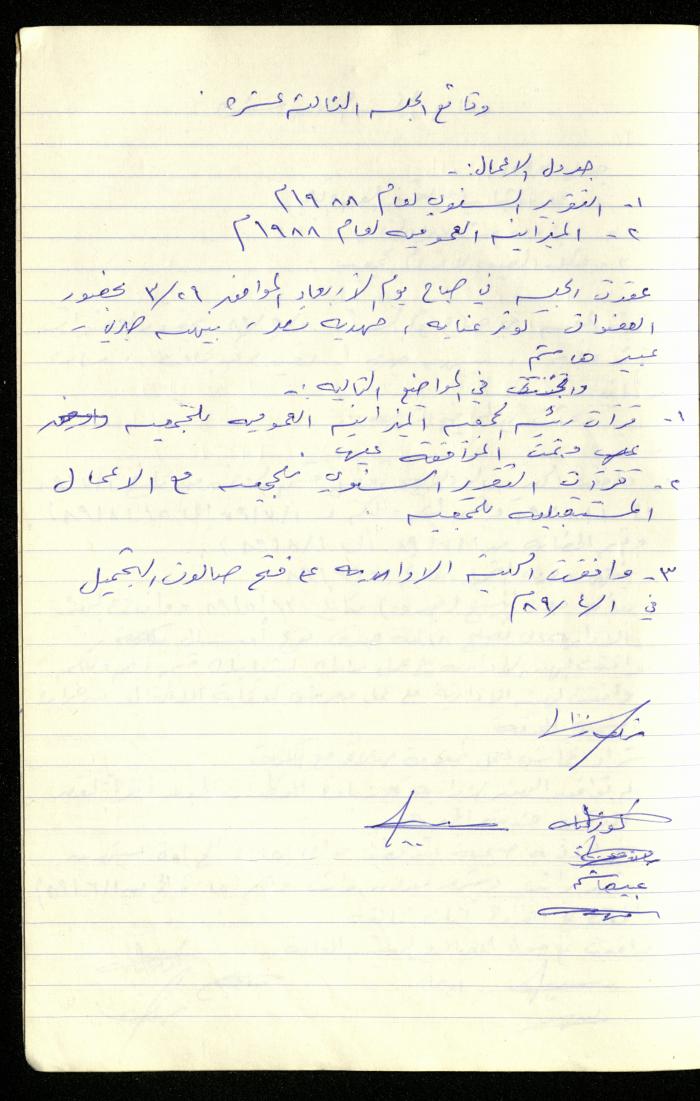 وقائع الجلسه الثالثه عشره
جدول الاعمال :-
١- التقرير السنوي لعام ١٩٨٨م
٢- الميزانيه العموميه لعام ١٩٨٨م
عقدت الجلسه في صباح يوم الأربعاء الموافق ٣/٢٩ بحضور
العضوات كوثر عنايه ،
عبير هاشم
في المواضع التاليه :-
١- قرأت رئيسه الجمعيه الميزانيه العموميه للجمعيه
وتمت الموافقة عليها
٢- قرأت التقرير السنوي للجمعيه مع الاعمال
المستقبليه للجمعيه .
٣- وافقت الهيئه الاداريه على فتح صالون التجميل
في ٨٩/٤/١م
عبير هاشم